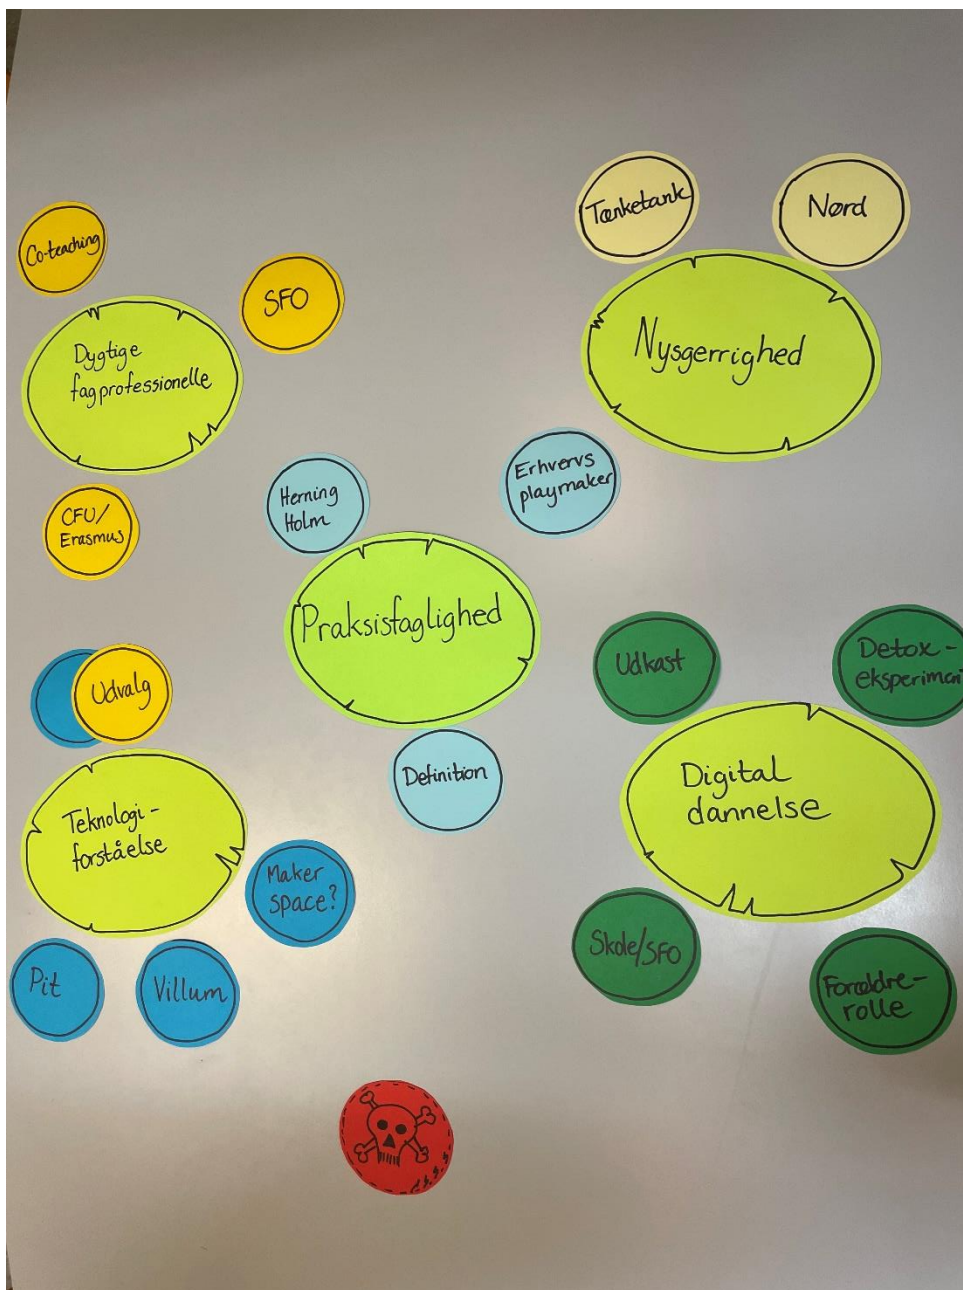 Co-teaching
SFO
Dygtige
fagprofessionelle
CFU/
Erasmus
Tænketank
Nørd
Nysgerrighed
Herning
Holm
Erhvervs
playmaker
Praksisfaglighed
Definition
Udvalg
Teknologi-
forståelse
Maker
space?
Pit
Villum
Udkast
Detox-
eksperimen
Digital
dannelse
Skole/SFO
Forældre-
rolle